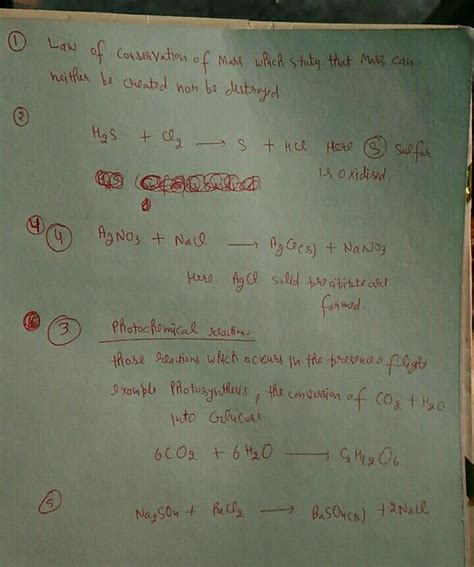 ① Law of conservation of Mass which states that Mass can
neither be created nor be destroyed
②
H2S + Cl2 → S + HCl Here Ⓢ sulfur
is oxidised.
4 ④ AgNO3 + NaCl → AgCl(s) + NaNO3
Here AgCl solid precipitate are
formed.
③ Photochemical reaction
those reactions which occurs in the presence of light
example Photosynthesis, the conversion of CO2 + H2O
into Glucose
6CO2 + 6H2O → C6H12O6
⑤
Na2SO4 + BaCl2 → BaSO4(s) + 2NaCl